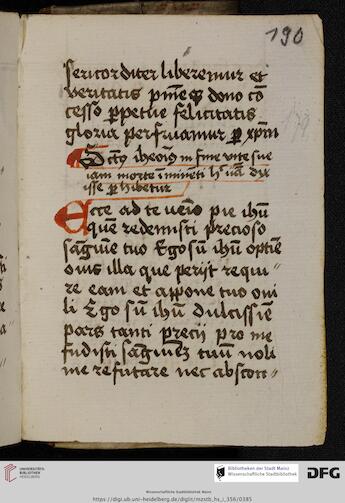 190
sericorditer liberemur et
veritatis p̄mẽ eẹ dono cō
cesso ꝑpetue felicitatis
gloria perfruamur ꝑ xp̄m
in fine vite sue
iam morte īmineti
isse ꝑhibetur
Ecce ad te venio pie ihū
quē redemisti precioso
sāgūıe tuo Ego sū ihū optīe
ouis illa que perijt requi
re eam et appone tuo oui
li Ego sū ihū dulcissīe
pars tanti precij pro me
fudisti sāgūıez tuū noli
me refutare nec abscon
UNIVERSITÄTS-
BIBLIOTHEK
HEIDELBERG
Bibliotheken der Stadt Mainz
Wissenschaftliche Stadtbibliothek
DFG
Wissenschaftliche Stadtbibliothek Mainz
https://digi.ub.uni-heidelberg.de/diglit/mzstb_hs_i_356/0385